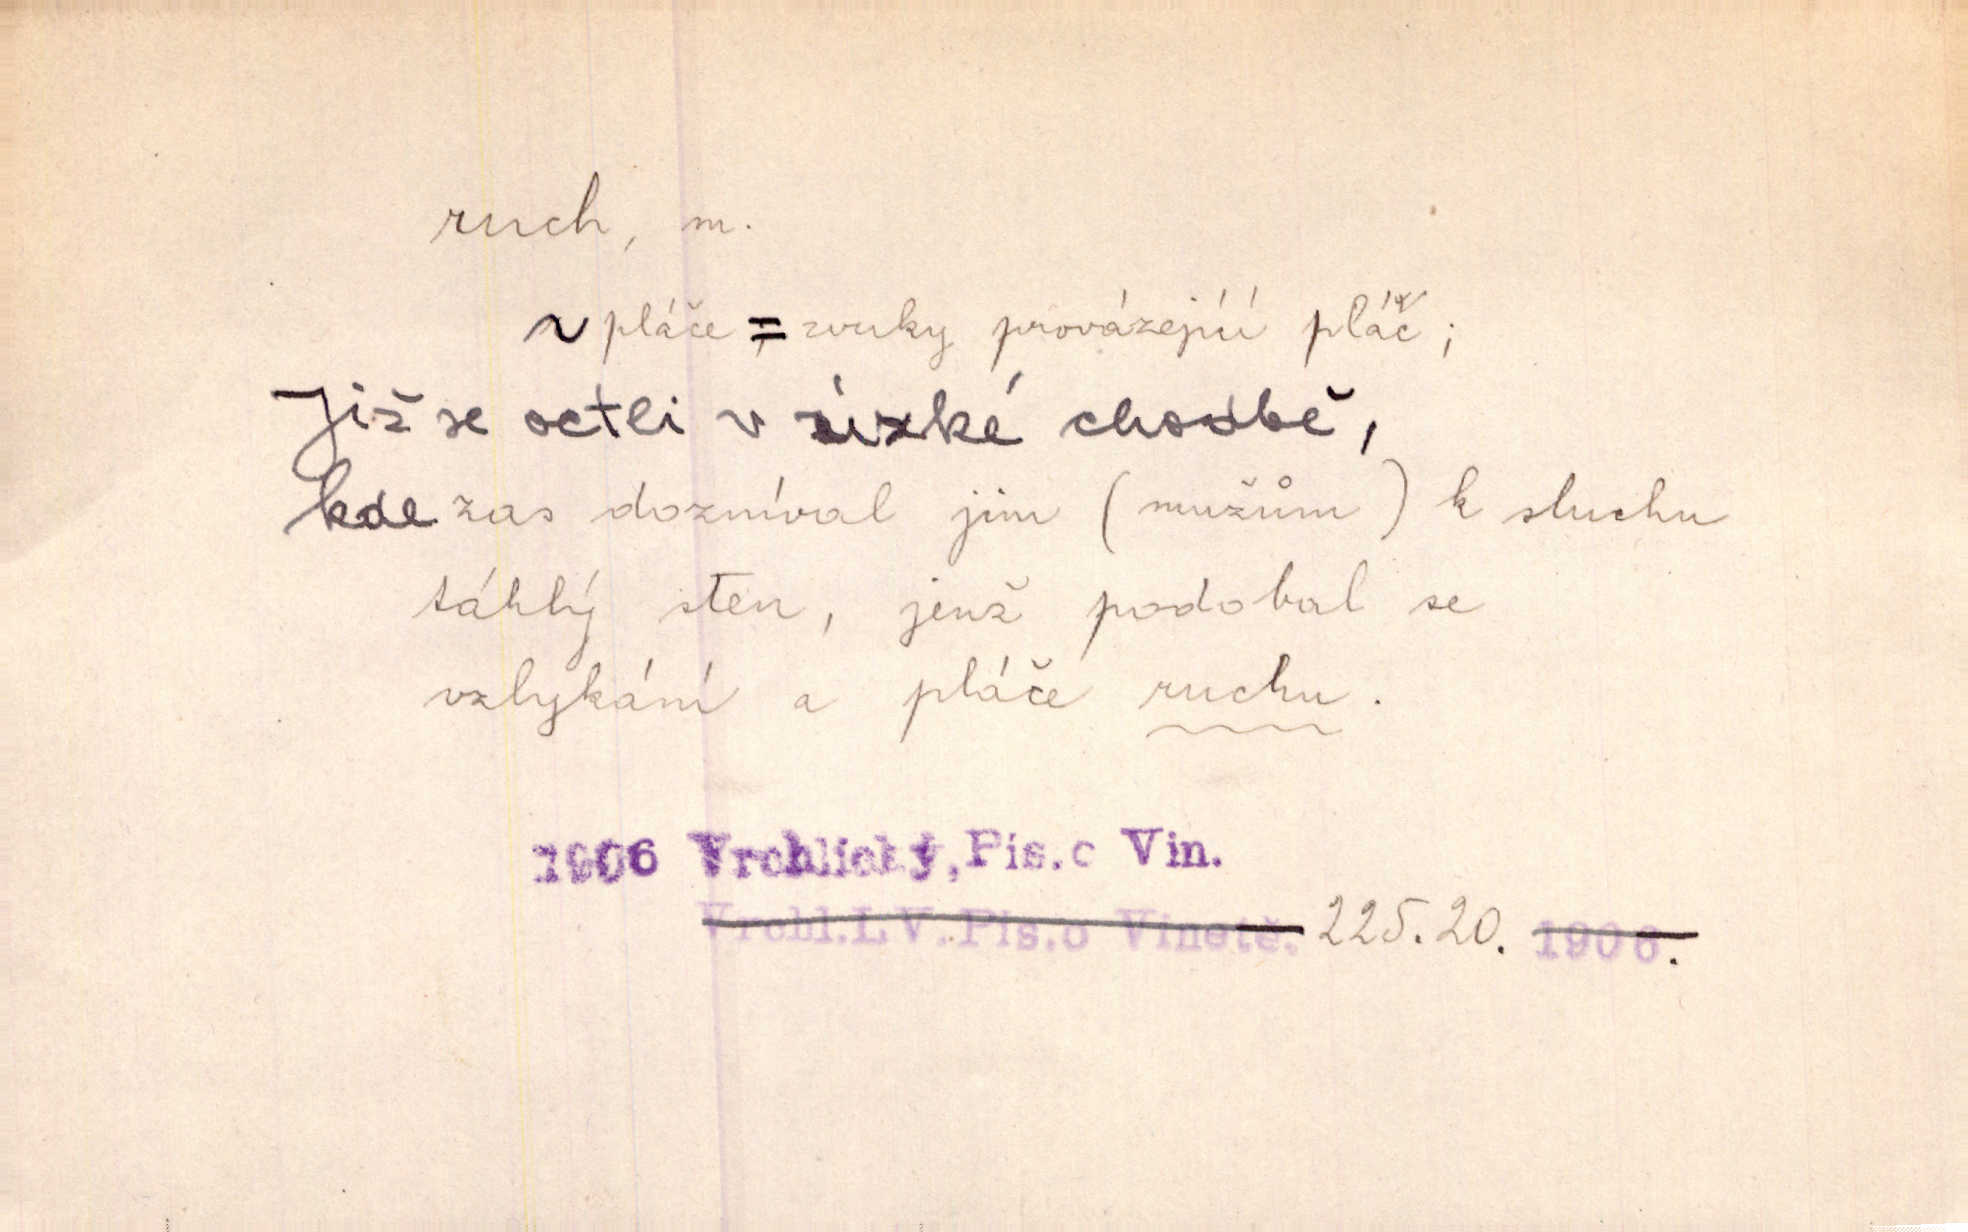 ruch, m.
~ pláče = zvuky provázející pláč;
Již se octli v úzké chodbě,
kde zas dozníval jim (mužům) k sluchu
táhlý sten, jenž podobal se
vzlykání a pláče ruchu.
1906 Vrchlický, Pís. o Vin.
Vrchl. J. V. Pís. o Vinetě. 225.20. 1906.